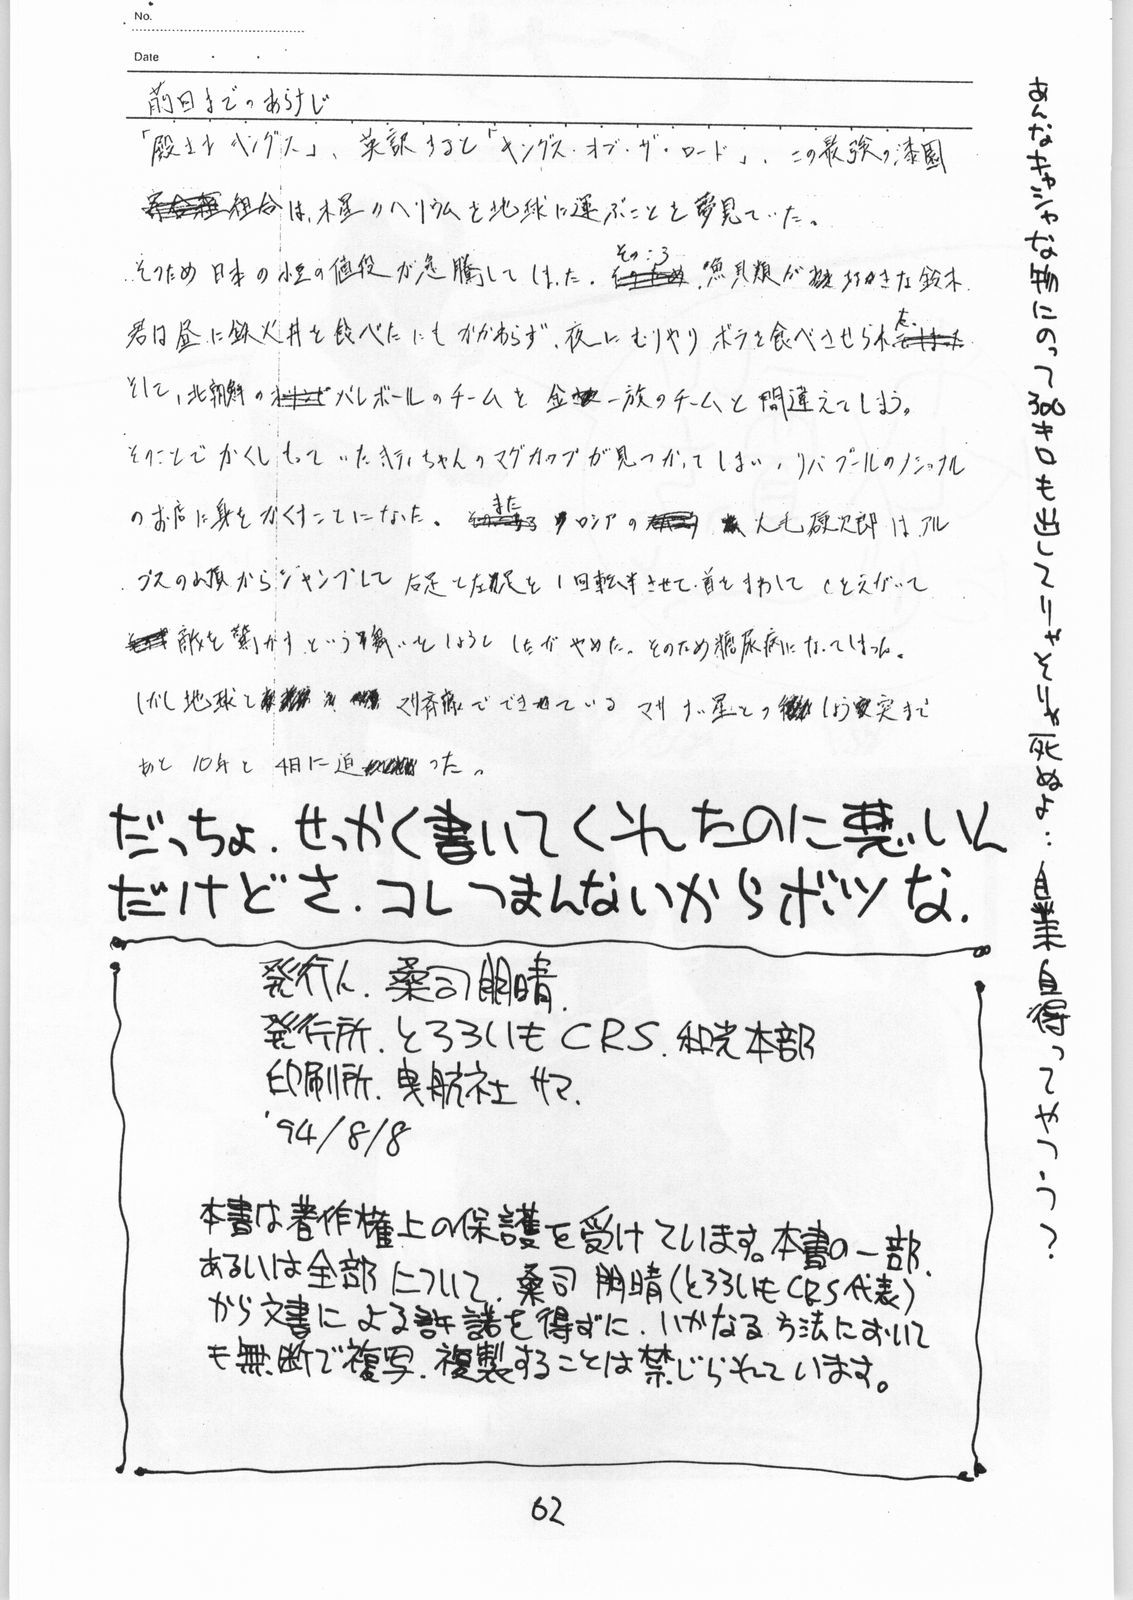 No.
Date
前回までのあらすじ
「殿上キングス」、英訳すると「キングス・オブ・ザ・ロード」、この最強の漆園
組合は、木星のヘリウムを地球に運ぶことを夢見ていた。
そのため日本の小豆の値段が急騰してしまった。そのころ魚貝類が好きな鈴木
君は昼に鉄火丼を食べたにもかかわらず、夜にむりやりボラを食べさせられた。
そして、北朝鮮のバレーボールのチームを金一族のチームと間違えてしまう。
そのことでかくしもっていたキティちゃんのマグカップが見つかってしまい、リバプールの
のお店に身をかくすことになった。またロシアの大毛硬次郎はアル
プスの山頂からジャンプして右足と左足を1回転半させて首をまわして
敵を驚かすというしようとしたがやめた。そのため糖尿病になってしまった。
しかし地球とでできているマサ星とのしょう突まで
あと10年と4日に迫った。
だっちょ、せっかく書いてくれたのに悪いん
だけどさ、コレつまんないからボツな。
あんなキャシャな物にのって300キロも出してりゃそりゃ死ぬよ‥自業自得ってやつう?
発行人、桑司朋晴、
発行所、とろろいもCRS、和光本部
印刷所、曳航社サマ、
'94/8/8
本書は著作権上の保護を受けています。本書の一部、
あるいは全部について、桑司朋晴(とろろいもCRS代表)
から文書による許諾を得ずに、いかなる方法において
も無断で複写、複製することは禁じられています。
62